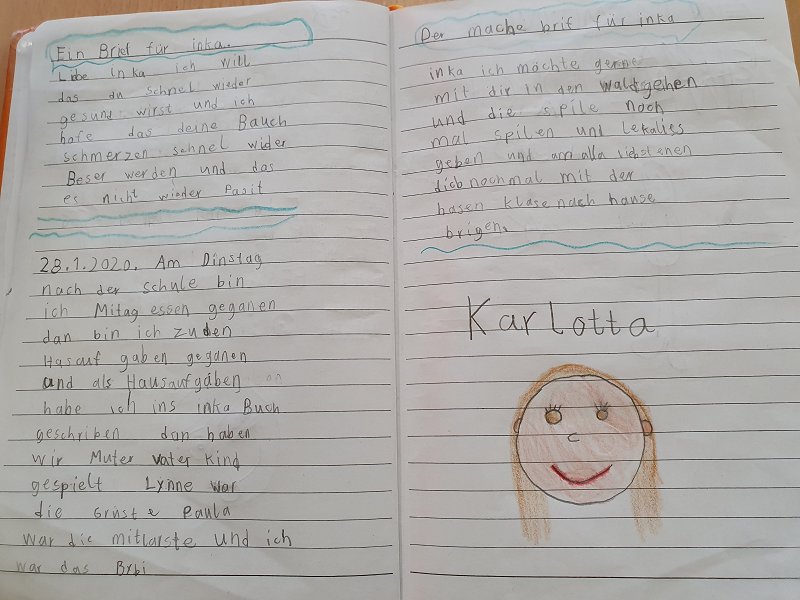 Ein Brief für inka.
Libe Inka ich will
das du schnel wieder
gesund wirst und ich
hofe das deine Bauch
schmerzen schnel wider
Beser werden und das
es nicht wieder Pasit
28.1.2020. Am Dinstag
nach der schule bin
ich Mitag essen geganen
dan bin ich zu den
Hasauf gaben geganen
und als Hausaufgaben an
habe ich ins inka Buch
geschriben dan haben
wir Muter vater Kind
gespielt Lynne war
die Grüste Paula
war die mitlarste und ich
war das Bybi
Der mache brif für inka
inka ich möchte gerne
mit dir in den waldgehen
und die spile noch
mal spilen und Lekaliss
geben und am alla
dich nochmal mit der
hasen klase nach hause
brigen.
Karlotta